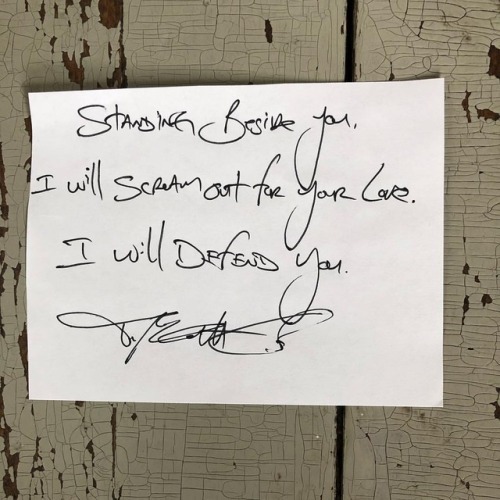 Standing Beside you.
I will Scream out for your Love.
I will Defend you.